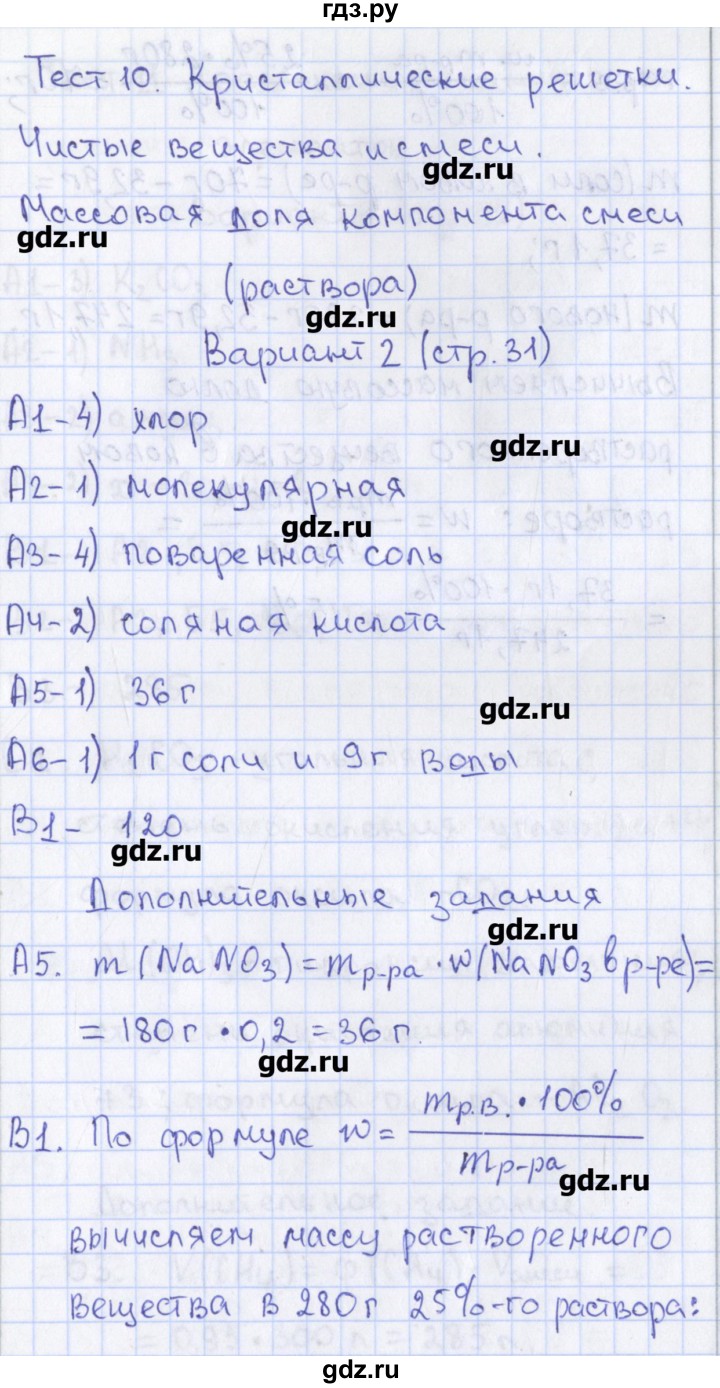 гдз.ру
Тест 10. Кристаллические решетки.
Чистые вещества и смеси.
gdz.ru
Массовая доля компонента смеси
gdz.ru
(раствора)
gdz.ru
Вариант 2 (стр. 31)
А1-4) хлор
gdz.ru
А2-1) молекулярная
gdz.ru
А3-4) поваренная соль
А4-2) соляная кислота
А5-1) 36 г
gdz.ru
А6-1) 1г соли и 9г воды
В1- 120
gdz.ru
Дополнительные задания
gdz.ru
А5. m(NaNO3)=mр-ра·w(NaNO3 в р-ре)=
=180г·0,2=36г.
gdz.ru
В1. По формуле w= mр.в.·100% / mр-ра
gdz.ru
вычисляем массу растворенного
вещества в 280г 25%-го раствора:
gdz.ru